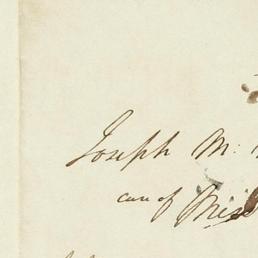 Joseph M:
care of Miss